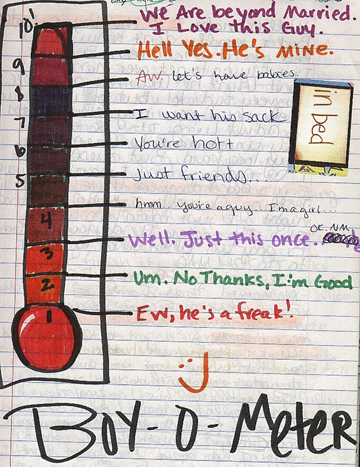 10!
We Are beyond Married.
I Love this Guy.
Hell Yes. He's MINE.
9
Aw. Let's have babies.
8
I want his sack
in bed
7
You're hott
6
Just friends...
5
hmm. you're a guy... I'm a girl...
4
OK. NM
Well. Just this once.
3
Um. No Thanks, I'm Good
2
Ew, he's a freak!
1
:J
BOY-O-METER